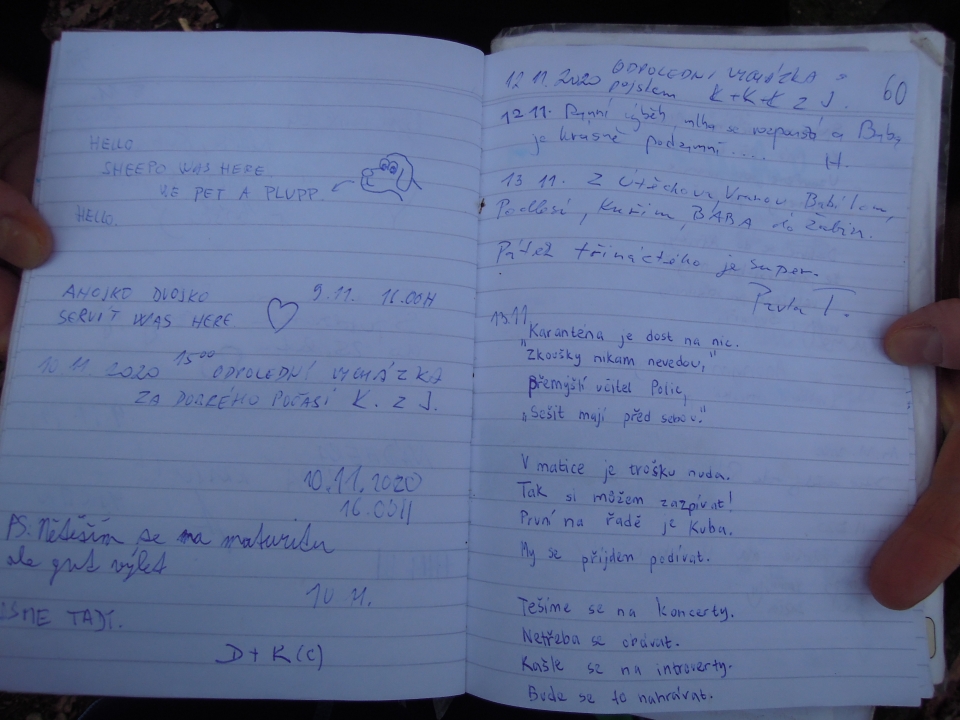 HELLO
SHEEPO WAS HERE.
VE PET A PLUPP.
HELLO.
AHOJKO DVOJKO 9.11. 16.00H
SERVÍT WAS HERE
10 11 2020 15⁰⁰ ODPOLEDNÍ VYCHÁZKA
ZA DOBRÉHO POČASÍ K. Z J.
10.11.2020
16.00H
PS. Netěším se na maturitu
ale gut výlet
10 11.
JSME TADY.
D + K (C)
60
12 11. 2020 ODPOLEDNÍ VYCHÁZKA S
pejskem K+K+K Z J.
12 11. Ranní výběh, mlha se rozpouští a Baba
je krásně podzimní .... H.
13 11. Z Útěchova, Vranov, Babí lom,
Podlesí, Kuřim, BABA do Žabin.
Pátek třináctého je super.
Pavla T.
13.11.
"Karanténa je dost na nic.
"Zkoušky nikam nevedou,"
přemýšlí učitel Polic,
"Sešit mají před sebou."
V matice je trošku nuda.
Tak si můžem zazpívat!
První na řadě je Kuba.
My se přijdem podívat.
Těšíme se na koncerty.
Netřeba se obávat.
Kašle se na introverty.
Bude se to nahrávat.